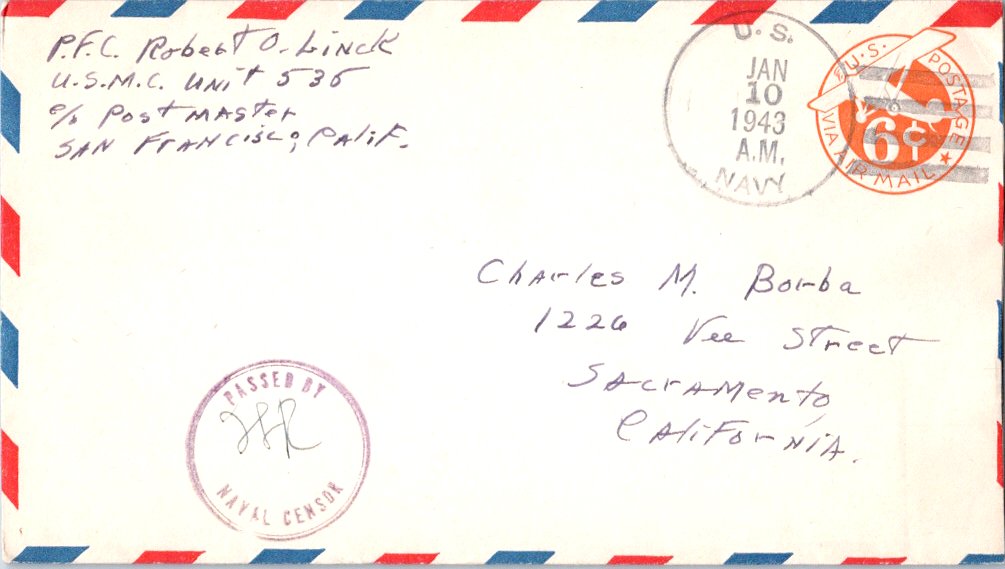 P.F.C. Robert O. Linck
U.S.M.C. Unit 535
c/o Post Master
San Francisco, Calif.
U.S.
JAN
10
1943
A.M.
NAVY
U.S. POSTAGE
6¢
VIA AIR MAIL
Charles M. Borba
1226 Vee Street
Sacramento,
California.
PASSED BY
NAVAL CENSOR